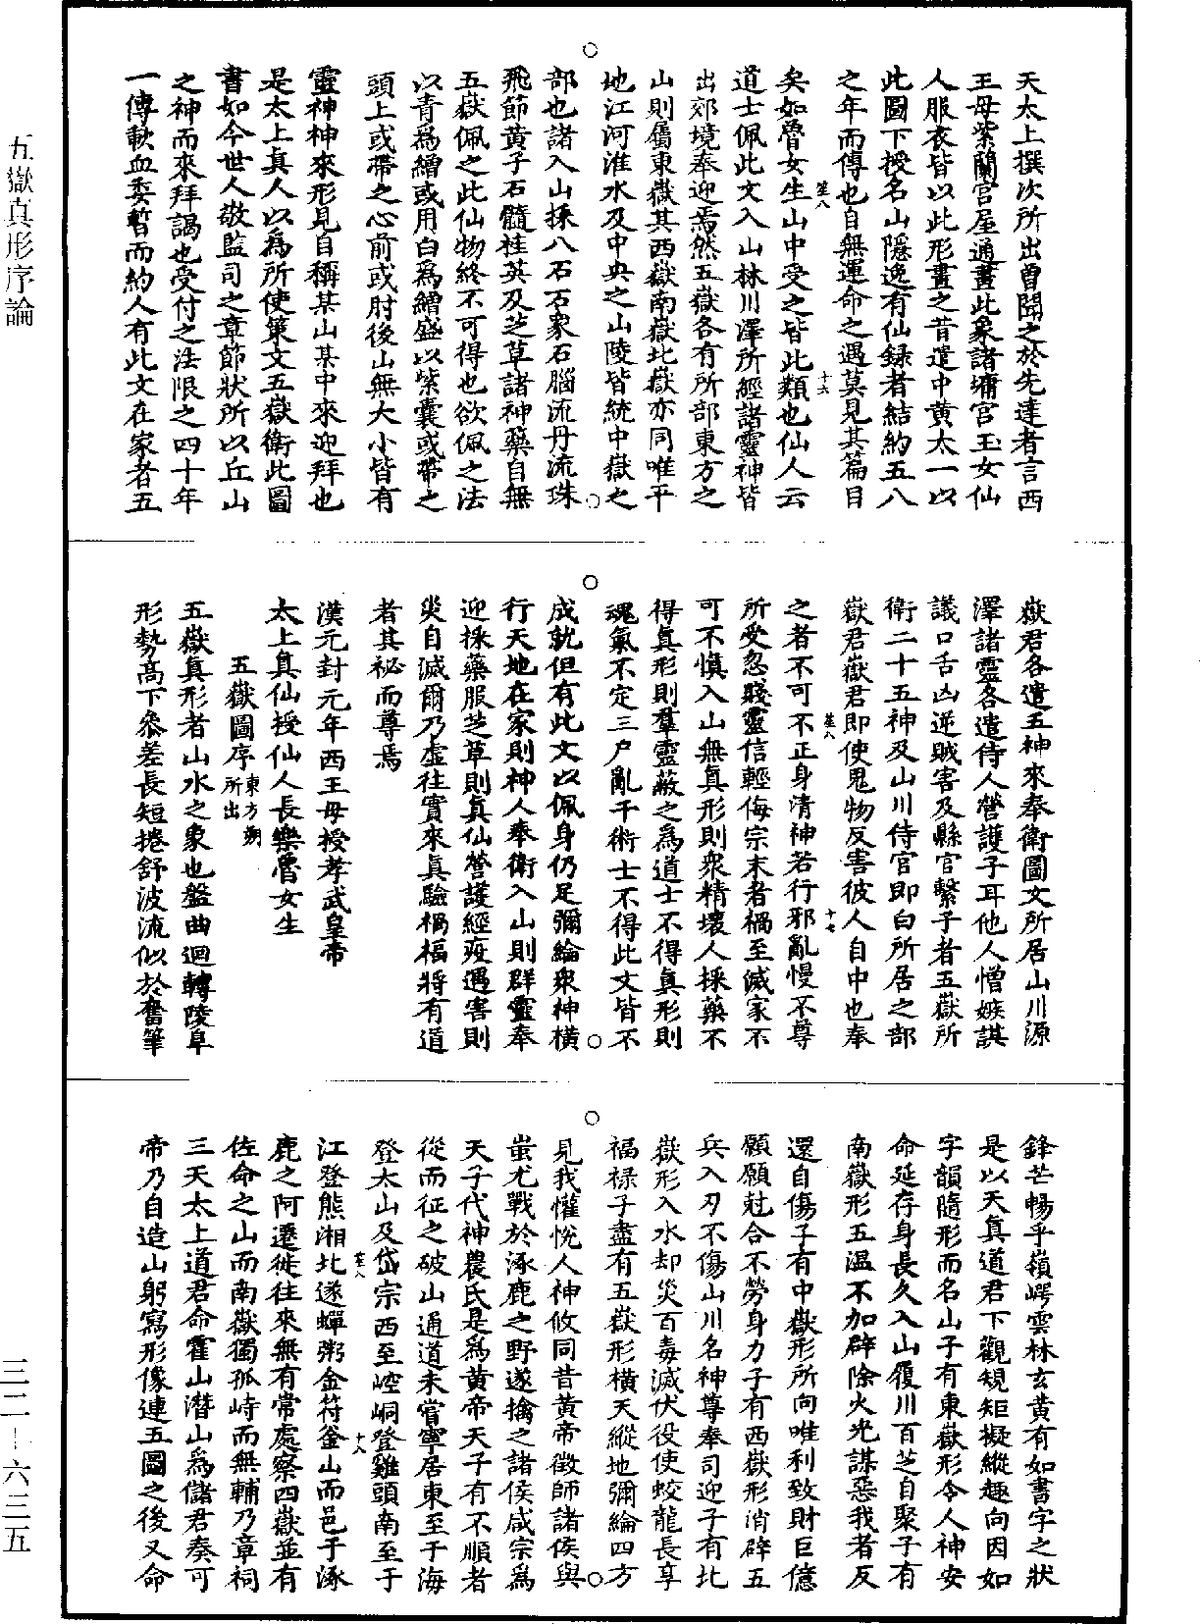 天太上撰次所出曾聞之於先達者言西
王母紫蘭宮屋通畫此象諸墉宮玉女仙
人服衣皆以此形畫之昔遣中黄太一以
此圖下授名山隱逸有仙録者結約五八
之年而傳也自無運命之遇莫見其篇目
笙八
十六
矣如魯女生山中受之皆此類也仙人云
道士佩此文入山林川澤所經諸靈神皆
出郊境奉迎焉然五嶽各有所部東方之
山則屬東嶽其西嶽南嶽北嶽亦同唯平
地江河淮水及中央之山陵皆統中嶽之
部也諸入山採八石石象石腦流丹流珠
飛節黄子石髓桂英及芝草諸神藥自無
五嶽佩之此仙物終不可得也欲佩之法
以青爲繒或用白爲繒盛以紫囊或帶之
頭上或帶之心前或肘後山無大小皆有
靈神神來形見自稱某山某中來迎拜也
是太上真人以爲所使策文五嶽衛此圖
書如今世人敬監司之章節狀所以丘山
之神而來拜謁也受付之法限之四十年
一傳歃血委誓而約人有此文在家者五
嶽君各遣五神來奉衛圖文所居山川源
澤諸靈各遣侍人營護子耳他人憎嫉謀
議口舌凶逆賊害及縣官繫子者五嶽所
衛二十五神及山川侍官即白所居之部
嶽君嶽君即使鬼物反害彼人自中也奉
笙八
十七
之者不可不正身清神若行邪亂慢不尊
所受忽賤靈信輕侮宗末者禍至滅家不
可不慎入山無真形則衆精壞人採藥不
得真形則羣靈蔽之爲道士不得真形則
魂氣不定三尸亂干術士不得此文皆不
成就但有此文以佩身仍足彌綸衆神横
行天地在家則神人奉衛入山則群靈奉
迎採藥服芝草則真仙營護經疫遇害則
災自滅爾乃虚往實來真驗禍福將有道
者其祕而尊焉
漢元封元年西王母授孝武皇帝
太上真仙授仙人長樂魯女生
五嶽圖序東方朔所出
五嶽真形者山水之象也盤曲迴轉陵阜
形勢高下參差長短捲舒波流似於奮筆
鋒芒暢乎嶺崿雲林玄黄有如書字之狀
是以天真道君下觀規矩擬縱趣向因如
字韻隨形而名山子有東嶽形令人神安
命延存身長久入山履川百芝自聚子有
南嶽形五温不加辟除火光謀惡我者反
還自傷子有中嶽形所向唯利致財巨億
願願尅合不勞身力子有西嶽形消辟五
兵入刃不傷山川名神尊奉司迎子有北
嶽形入水却災百毒滅伏役使蛟龍長享
福禄子盡有五嶽形横天縱地彌綸四方
見我懽悦人神攸同昔黄帝徵師諸侯與
蚩尤戰於涿鹿之野遂擒之諸侯咸宗爲
天子代神農氏是爲黄帝天子有不順者
從而征之破山通道未嘗寧居東至于海
登太山及岱宗西至崆峒登雞頭南至于
笙八
十八
江登熊湘北遂蟬粥金符釜山而邑于涿
鹿之阿遷徙往來無有常處察四嶽並有
佐命之山而南嶽獨孤峙而無輔乃章祠
三天太上道君命霍山潛山爲儲君奏可
帝乃自造山躬寫形像連五圖之後又命
五嶽真形序論
三二—六三五